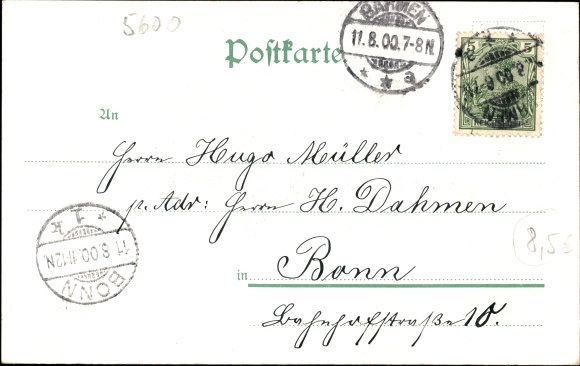 5600
BARMEN
11.8.00.7-8N.
* * a
5 5
Postkarte
An
Herrn Hugo Müller
p. Adr: Herrn H. Dahmen
in Bonn
Bahnhofstraße 10.
BONN
11.8.00.11-12N.
* 1 k
8,50